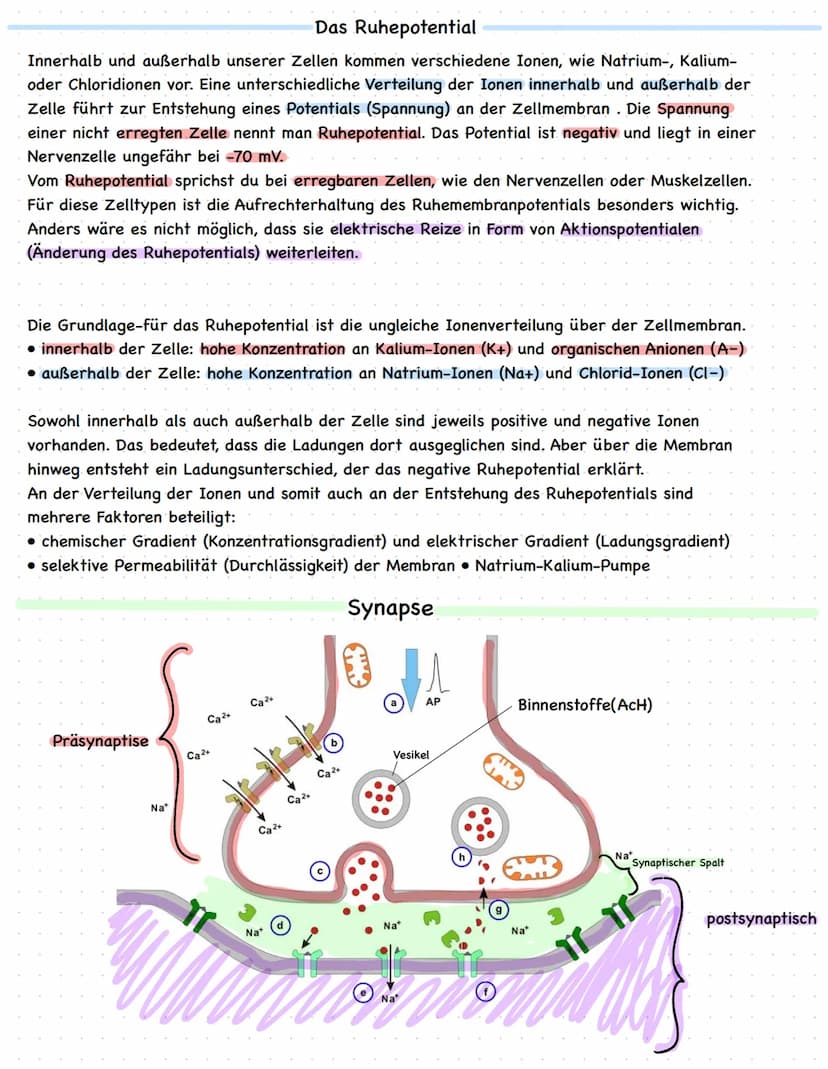 Das Ruhepotential
Innerhalb und außerhalb unserer Zellen kommen verschiedene Ionen, wie Natrium-, Kalium-
oder Chloridionen vor. Eine unterschiedliche Verteilung der Ionen innerhalb und außerhalb der
Zelle führt zur Entstehung eines Potentials (Spannung) an der Zellmembran . Die Spannung
einer nicht erregten Zelle nennt man Ruhepotential. Das Potential ist negativ und liegt in einer
Nervenzelle ungefähr bei -70 mV.
Vom Ruhepotential sprichst du bei erregbaren Zellen, wie den Nervenzellen oder Muskelzellen.
Für diese Zelltypen ist die Aufrechterhaltung des Ruhemembranpotentials besonders wichtig.
Anders wäre es nicht möglich, dass sie elektrische Reize in Form von Aktionspotentialen
(Änderung des Ruhepotentials) weiterleiten.
Die Grundlage-für das Ruhepotential ist die ungleiche Ionenverteilung über der Zellmembran.
• innerhalb der Zelle: hohe Konzentration an Kalium-Ionen (K+) und organischen Anionen (A-)
• außerhalb der Zelle: hohe Konzentration an Natrium-Ionen (Na+) und Chlorid-Ionen (Cl-)
Sowohl innerhalb als auch außerhalb der Zelle sind jeweils positive und negative Ionen
vorhanden. Das bedeutet, dass die Ladungen dort ausgeglichen sind. Aber über die Membran
hinweg entsteht ein Ladungsunterschied, der das negative Ruhepotential erklärt.
An der Verteilung der Ionen und somit auch an der Entstehung des Ruhepotentials sind
mehrere Faktoren beteiligt:
• chemischer Gradient (Konzentrationsgradient) und elektrischer Gradient (Ladungsgradient)
• selektive Permeabilität (Durchlässigkeit) der Membran • Natrium-Kalium-Pumpe
Synapse
a
AP
Binnenstoffe(AcH)
Ca²⁺
Ca²⁺
Ca²⁺
Präsynaptise
b
Vesikel
Ca²⁺
Ca²⁺
Ca²⁺
Na⁺
h
c
Na⁺
Synaptischer Spalt
g
d
Na⁺
Na⁺
Na⁺
postsynaptisch
e
Na⁺
f